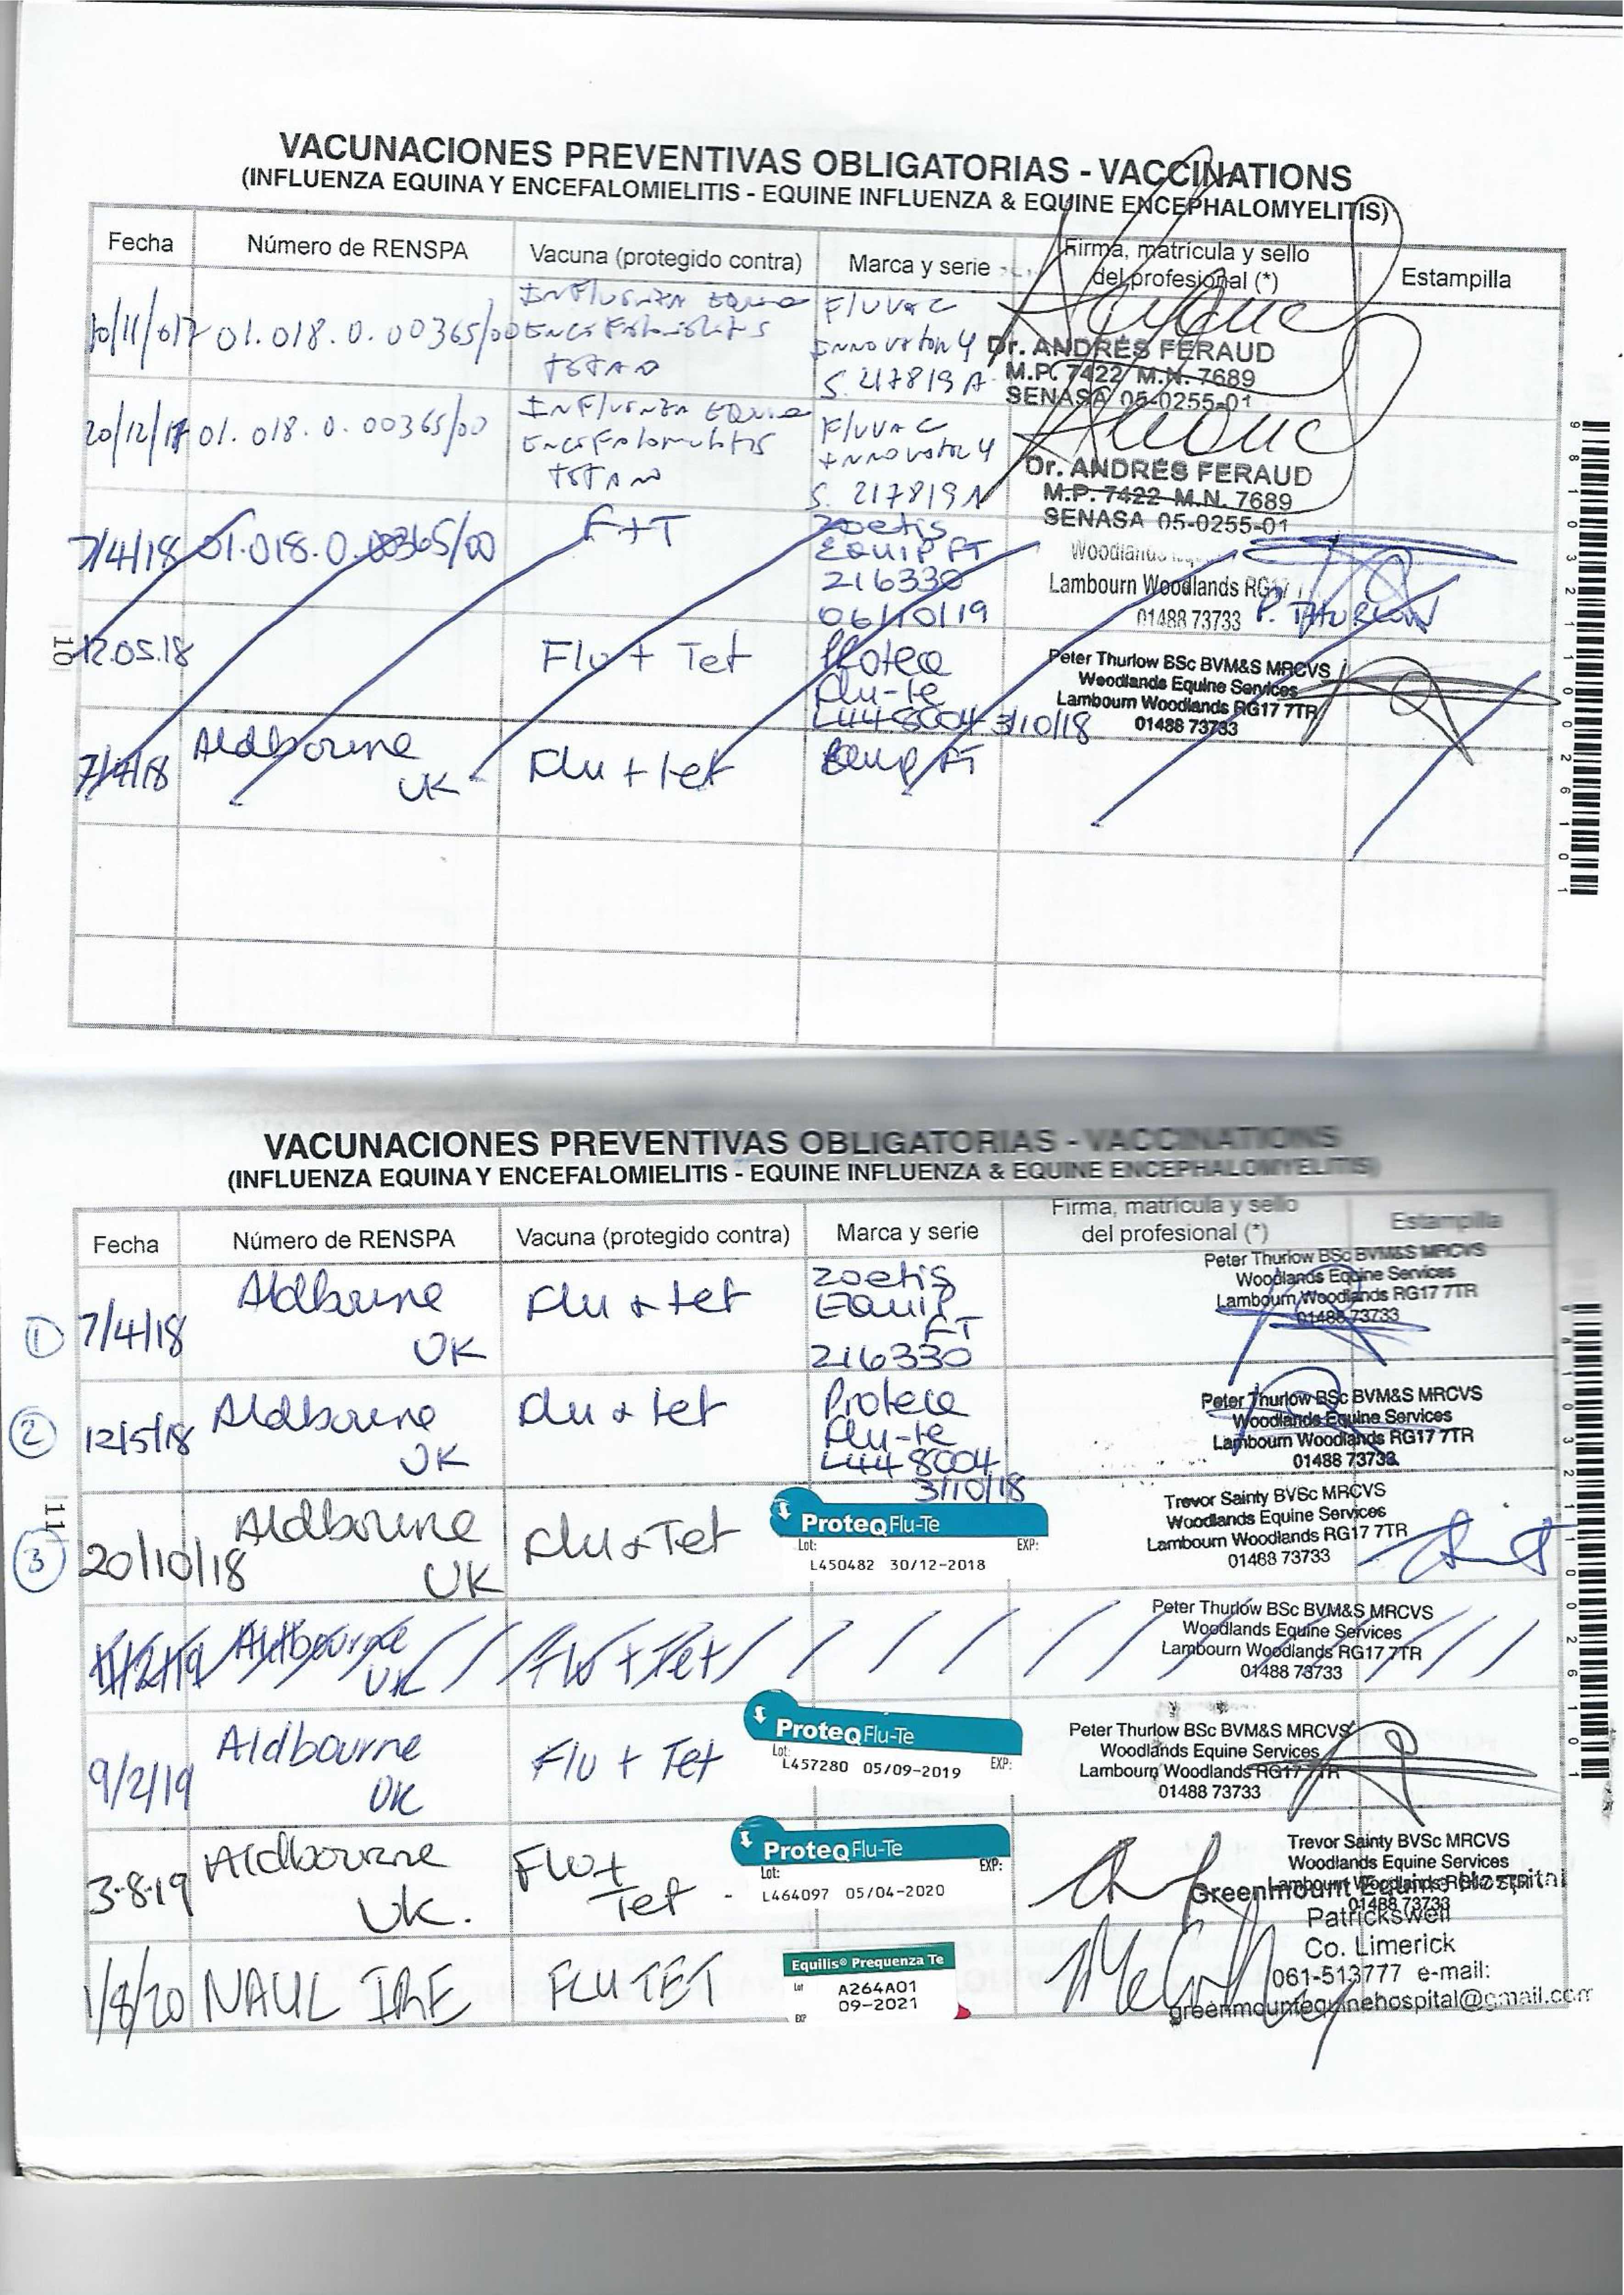 VACUNACIONES PREVENTIVAS OBLIGATORIAS - VACCINATIONS
(INFLUENZA EQUINA Y ENCEFALOMIELITIS - EQUINE INFLUENZA & EQUINE ENCEPHALOMYELITIS)
Fecha Número de RENSPA Vacuna (protegido contra) Marca y serie Firma, matrícula y sello del profesional (*) Estampilla
01.018.0.00365/00
FLUVAC
INNOVATOR 4
S. 217819A
Dr. ANDRÉS FERAUD
M.P. 7422 M.N. 7689
SENASA 05-0255-01
20/12/17 01.018.0.00365/00
FLUVAC
INNOVATOR 4
S. 217819A
Dr. ANDRÉS FERAUD
M.P. 7422 M.N. 7689
SENASA 05-0255-01
7/4/18 01.018.0.00365/00 F+T
Zoetis
EQUIP FT
216330
06/10/19
Lambourn Woodlands RG17
01488 73733 P. THURLOW
10
12.05.18 Flu + Tet
Proteq
Flu-te
L448004 3/10/18
Peter Thurlow BSc BVM&S MRCVS
Woodlands Equine Services
Lambourn Woodlands RG17 7TR
01488 73733
7/4/18 Aldbourne UK Flu + tet Equip FT
9 8 1 0 3 2 1 1 0 0 2 6 1 0 1
VACUNACIONES PREVENTIVAS OBLIGATORIAS - VACCINATIONS
(INFLUENZA EQUINA Y ENCEFALOMIELITIS - EQUINE INFLUENZA & EQUINE ENCEPHALOMYELITIS)
Fecha Número de RENSPA Vacuna (protegido contra) Marca y serie Firma, matrícula y sello del profesional (*) Estampilla
1 7/4/18 Aldbourne UK Flu & tet
Zoetis
Equip
FT
216330
Peter Thurlow BSc BVM&S MRCVS
Woodlands Equine Services
Lambourn Woodlands RG17 7TR
01488 73733
2 12/5/18 Aldbourne UK Flu & tet
Proteq
Flu-te
L448004
3/10/18
Peter Thurlow BSc BVM&S MRCVS
Woodlands Equine Services
Lambourn Woodlands RG17 7TR
01488 73733
11
3 20/10/18 Aldbourne UK Flu & Tet
ProteqFlu-Te
Lot: EXP:
L450482 30/12-2018
Trevor Sainty BVSc MRCVS
Woodlands Equine Services
Lambourn Woodlands RG17 7TR
01488 73733
Aldbourne UK Flu + Tet
Peter Thurlow BSc BVM&S MRCVS
Woodlands Equine Services
Lambourn Woodlands RG17 7TR
01488 73733
9/2/19 Aldbourne UK Flu + Tet
ProteqFlu-Te
Lot: EXP:
L457280 05/09-2019
Peter Thurlow BSc BVM&S MRCVS
Woodlands Equine Services
Lambourn Woodlands RG17 7TR
01488 73733
3.8.19 Aldbourne UK. Flu + Tet -
ProteqFlu-Te
Lot: EXP:
L464097 05/04-2020
Trevor Sainty BVSc MRCVS
Woodlands Equine Services
Lambourn Woodlands RG17 7TR
01488 73733
1/8/20 NAUL IRE FLU TET
Equilis® Prequenza Te
Lot A264A01
EXP 09-2021
Greenmount Equine Hospital
Patrickswell
Co. Limerick
061-513777 e-mail:
greenmountequinehospital@gmail.com